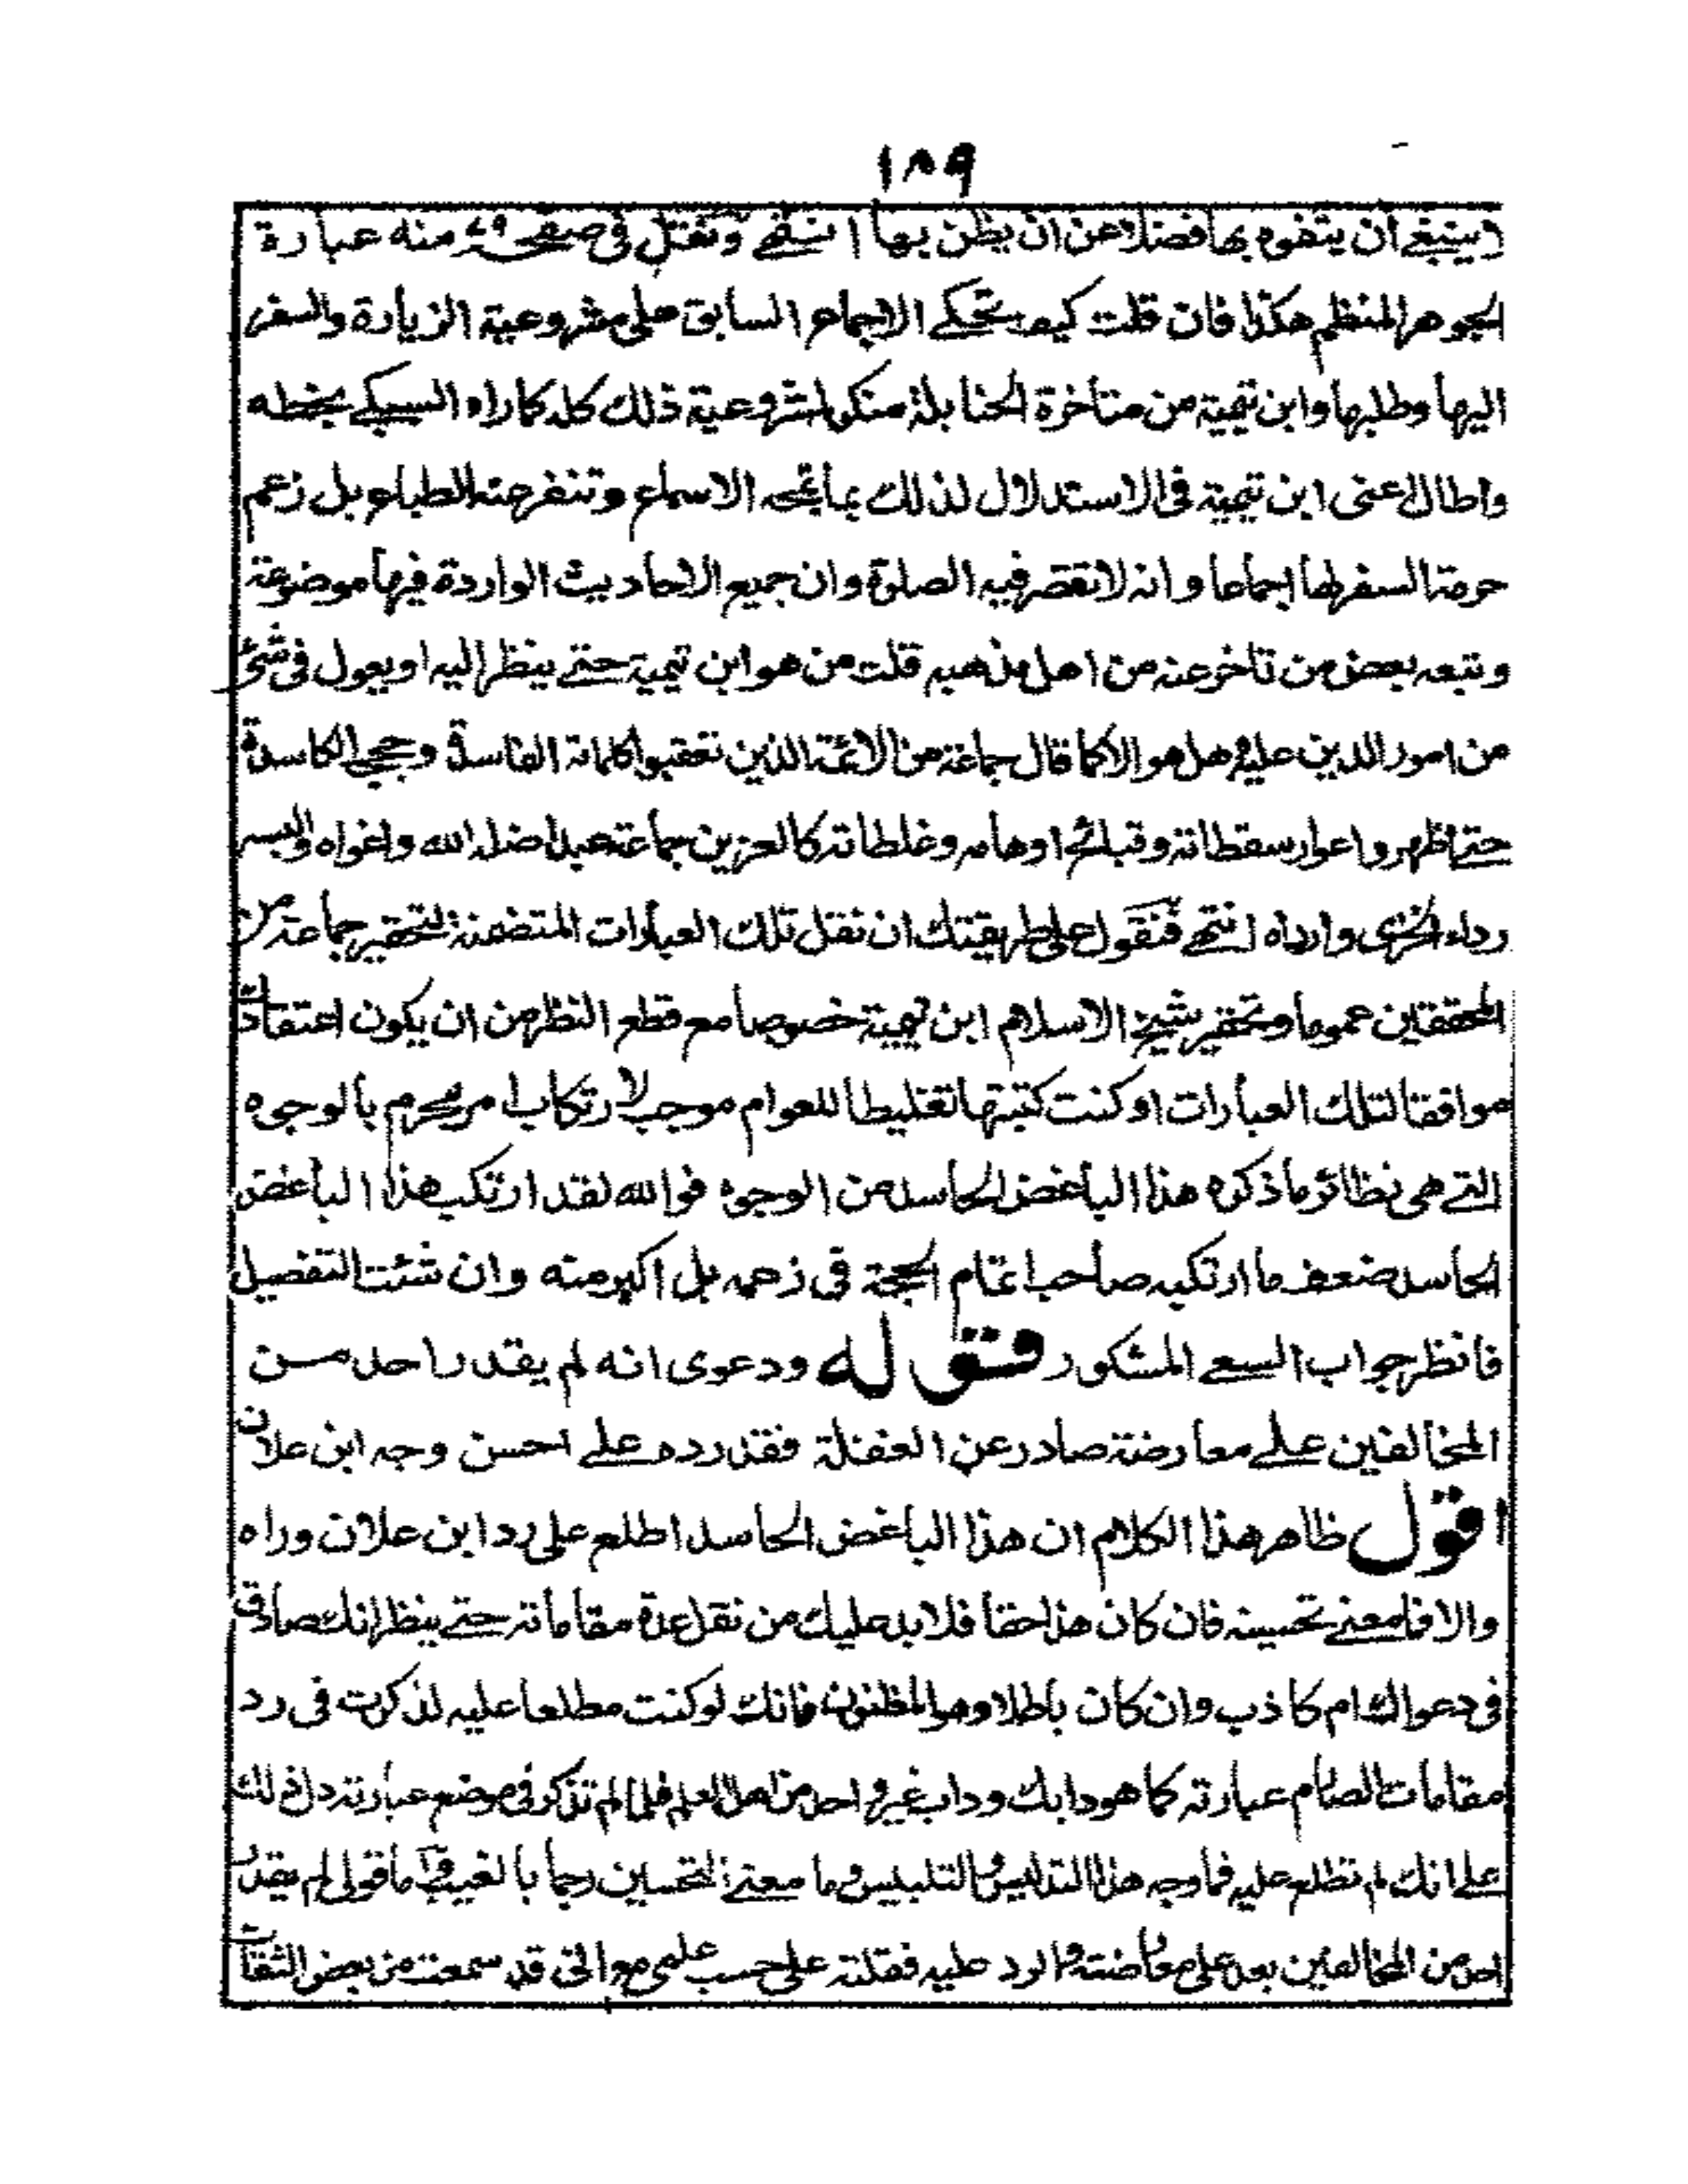 ١٨٩
ينبغي ان يتفوه بها فضلا عن ان يظن بها انتهى ونقل في صفحه منه عبارة
الجوهر المنظم هكذا فان قلت كيف تحكى الاجماع السابق على مشروعية الزيارة والسفر
اليها وطلبها وابن تيمية من متأخرة الحنابلة منكر لمشروعية ذلك كله كما راه السبكي بخطه
واطال اعنى ابن تيمية في الاستدلال لذلك بما تمجه الاسماع وتنفر عنه الطباع بل زعم
حرمة السفر لها اجماعا وانه لا تقصر فيه الصلوة وان جميع الاحاديث الواردة فيها موضوعة
وتبعه بعض من تاخر عنه من اهل مذهبه قلت من هو ابن تيمية حتى ينظر اليه او يعول في شئ
من امور الدين عليه وهل هو الا كما قال جماعة من الائمة الذين تعقبوا كلماته الفاسدة وحججه الكاسدة
حتى اظهروا اعوار سقطاته وقبائح اوهامه وغلطاته كالعز بن جماعة عبد اضله الله واغواه والبسه
رداء الخزى وارداه انتهى فنقول على طريقتك ان نقل تلك العبارات المتضمنة لتحقير جماعة من
المحققين عموما وتحقير شيخ الاسلام ابن تيمية خصوصا مع قطع النظر من ان يكون اعتقادك
موافقا لتلك العبارات او كنت كتبتها تغليطا للعوام موجب لارتكاب امر محرم بالوجوه
التي هي نظائر ما ذكره هذا الباغض الحاسد من الوجوه فوالله لقد ارتكب هذا الباغض
الحاسد ضعف ما ارتكبه صاحب اتمام الحجة في زعمه بل اكبر منه وان شئت التفصيل
فانظر جواب السعي المشكور قوله ودعوى انه لم يقدر احد من
المخالفين على معارضته صادر عن الغفلة فقد رده على احسن وجه ابن علان
اقول ظاهر هذا الكلام ان هذا الباغض الحاسد اطلع على رد ابن علان وراه
والا فما معنى تحسينه فان كان هذا حقا فلا بد عليك من نقل عدة مقاماته حتى ينظر انك صادق
في دعواك ام كاذب وان كان باطلا وهو المظنون فانك لو كنت مطلعا عليه لذكرت في رد
مقامات الصارم عبارته كما هو دابك وداب غير واحد من اهل العلم فلما لم تذكر في موضع عبارته دل ذلك
على انك لم تطلع عليه فما وجه هذا التدليس والتلبيس وما معنى التحسين رجما بالغيب واما قولي لم يقدر
احد من المخالفين بعد على معارضته والرد عليه فقلته على حسب علمي مع انى قد سمعت من بعض الثقات